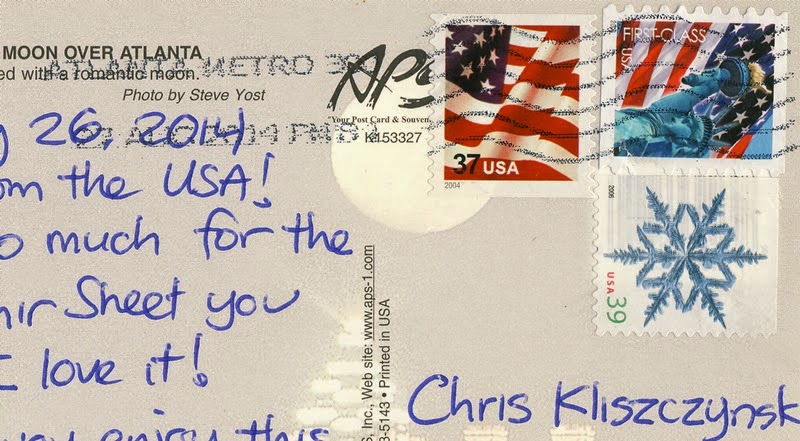 MOON OVER ATLANTA
ed with a romantic moon.
Photo by Steve Yost
ATLANTA METRO
APS
Your Post Card & Souven
K153327
26, 2014
om the USA!
o much for the
nir Sheet you
I love it!
enjoy this
S, Inc., Web site: www.aps-1.com
3-5143 • Printed in USA
37 USA
2004
FIRST-CLASS
USA
2006
USA 39
Chris Kliszczynsk